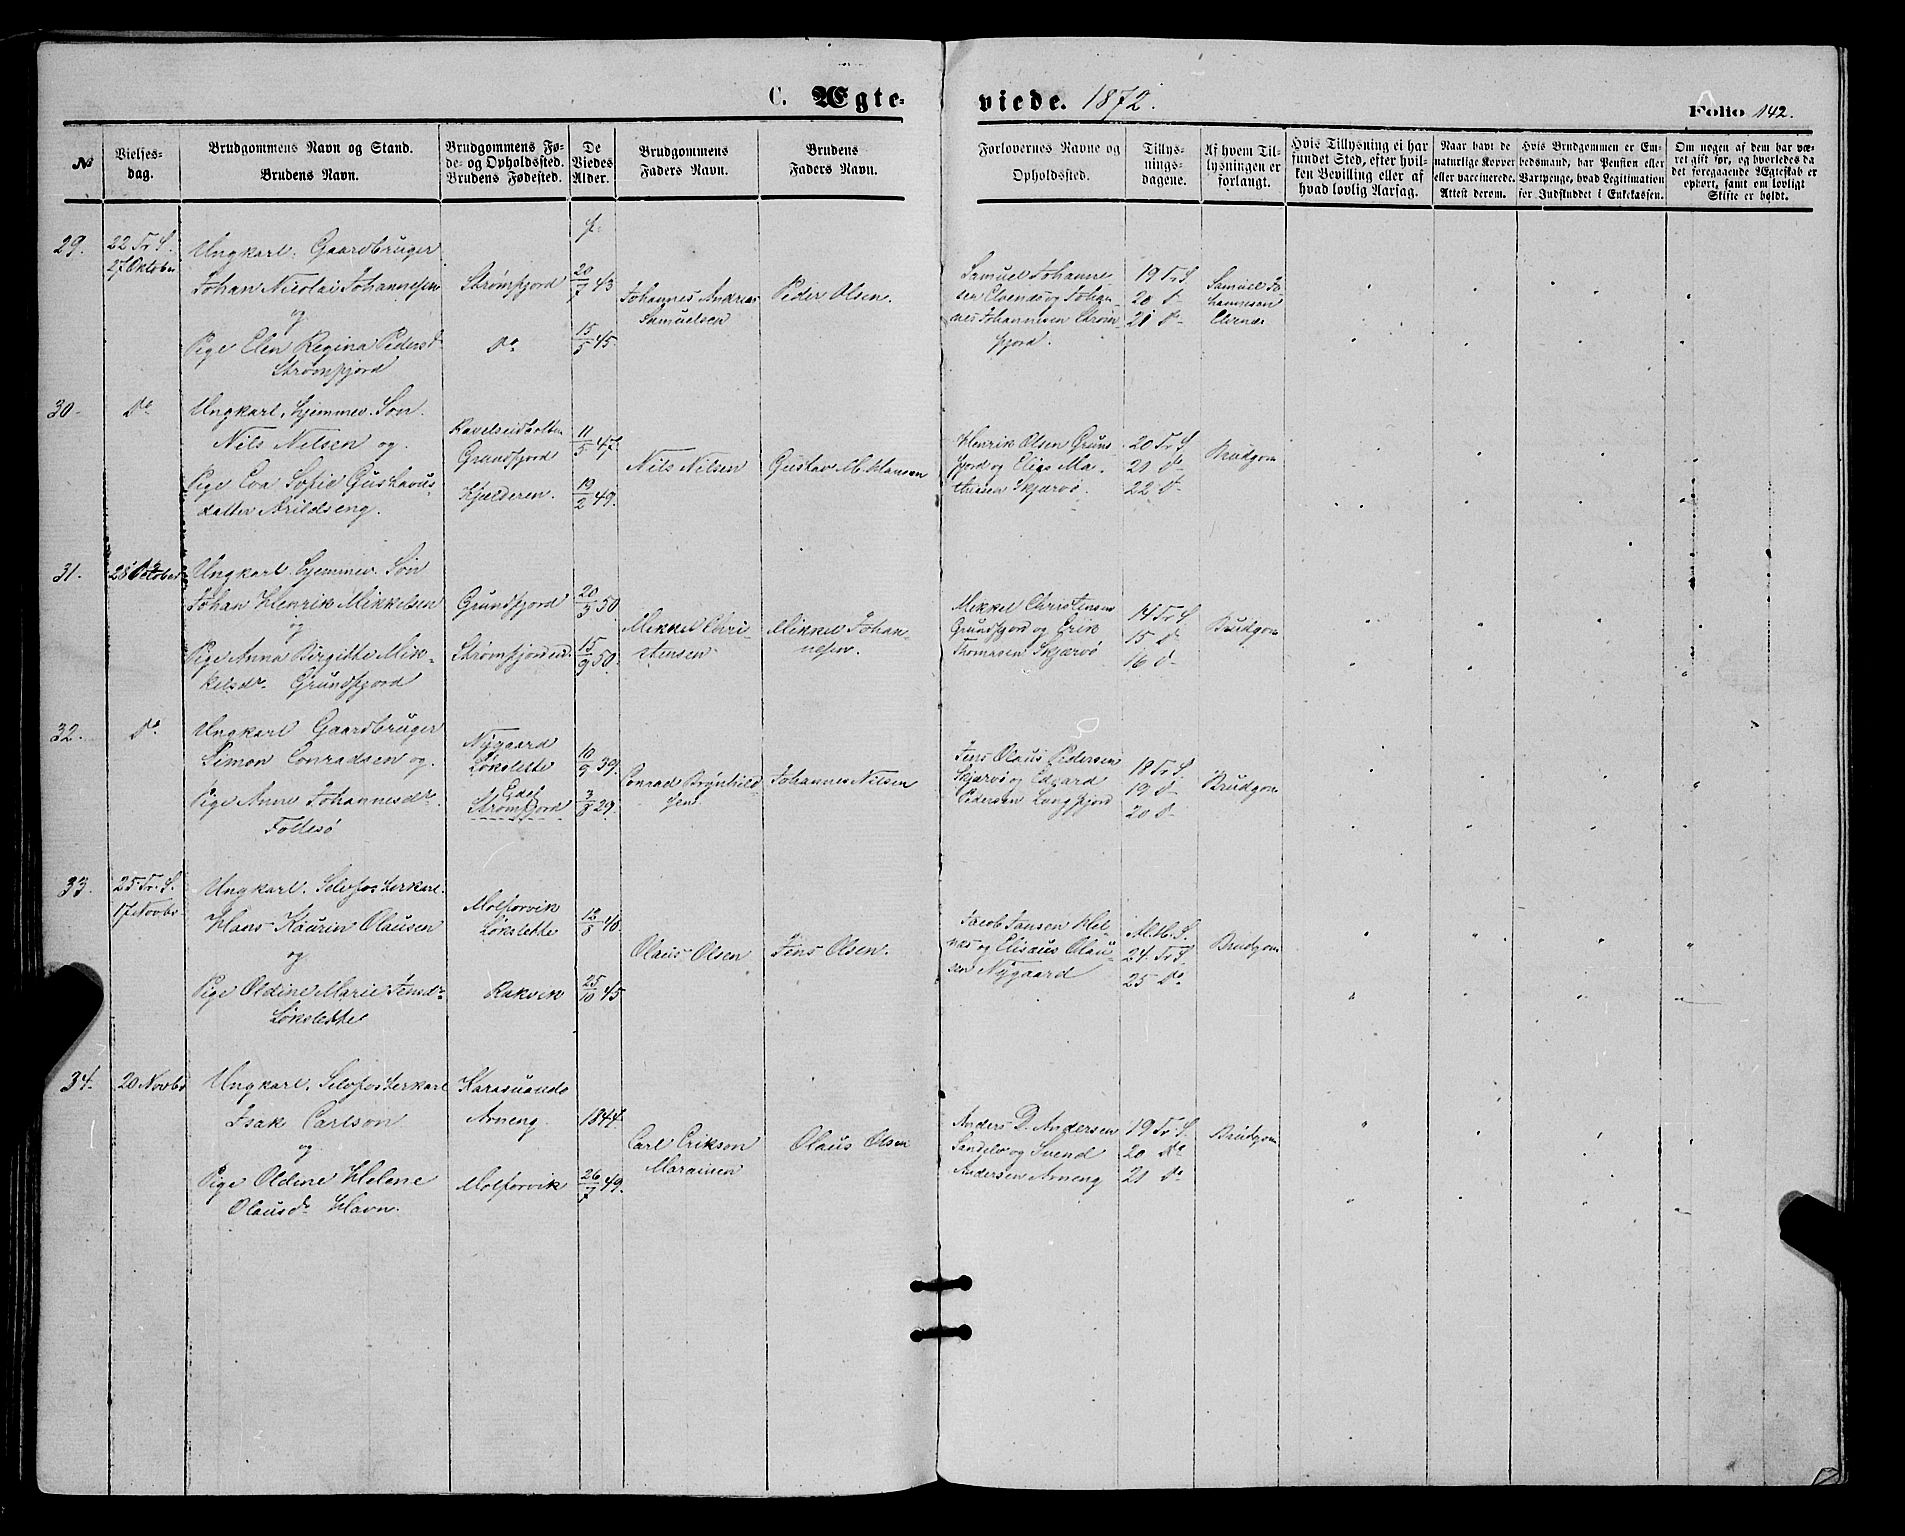 C. Ægte-
viede. 1872.
Folio 142.
No
Vielses-
dag.
Brudgommens Navn og Stand.
Brudens Navn.
Brudgommens Fø-
de- og Opholdssted.
Brudens Fødested.
De
Viedes
Alder.
Brudgommens
Faders Navn.
Brudens
Faders Navn.
Forlovernes Navne og
Opholdssted.
Tillys-
nings-
dagene.
Af hvem Til-
lysningen er
forlangt.
Hvis Tillysning ei har
fundet Sted, efter hvil-
ken Bevilling eller af
hvad lovlig Aarsag.
Naar havt de
naturlige Kopper
eller vaccinerede.
Attest derom.
Hvis Brudgommen er Em-
bedsmand, har Pension eller
Vartpenge, hvad Legitimation
for Indskuddet i Enkekassen.
Om nogen af dem har væ-
ret gift før, og hvorledes da
det foregaaende Ægteskab er
ophørt, samt om lovligt
Skifte er holdt.
29.
22 Tr. S.
27 Oktober
Ungkarl. Gaardbruger
Johan Nicolai Johannesen
og
Pige Elen Regina Pedersd.
Strømfjord
Strømfjord
Do
f.
20/7 43
15/5 45.
Johannes Andreas
Samuelsen
Peder Olsen.
Samuel Johanne-
sen Elvenes og Johan-
nes Johannesen Strøm-
fjord.
19 Tr. S
20 D
21 D
Samuel Jo-
hannesen
Elvenæs
30.
Do
Ungkarl, hjemmev. Søn.
Nils Nilsen og
Pige Eva Sofie Gusthavus-
datter Arildseng.
Grundfjord
Kjelderen.
11/5 47.
19/2 49.
Nils Nilsen
Gustav M. Hansen
Henrik Olsen Grund-
fjord og Elias Ma-
thisen Skjærvø.
20 Tr. S
21 Do
22 D
Brudgom
31.
28 October
Ungkarl. hjemmev. Søn
Johan Henrik Mikkelsen
og
Pige Anna Birgitte Mik-
kelsdr. Grundfjord
Grundfjord
Strømfjorden.
20/3 50
15/9 50.
Mikkel Chri-
stensen
Mikkel Johan-
nesen.
Mikkel Christensen
Grundfjord og Erik
Thomasen Skjærvø
14 Tr. S
15 D
16 D
Brudgom
32.
Do
Ungkarl Gaardbruger
Simon Conradsen og
Pige Anne Johannesdr.
Follesø
Nygaard
Løkslette
Eidet
Strømfjord
10/9 39.
3/8 29.
Conrad Brynhild-
sen
Johannes Nilsen
Jens Olaus Pedersen
Skjærvø og Edvard
Pedersen Langfjord
18 Tr. S.
19 D
20 D
Brudgom
33.
25 Tr. S.
17 Novbr
Ungkarl. Selvfosterkarl.
Hans Kaurin Olausen
og
Pige Oldine Marie Jensdr.
Løkslette
Molforvik
Løkslette
Rakvik
12/8 48.
25/10 45
Olaus Olsen
Jens Olsen.
Jacob Jansen Hel-
næs og Elisæus Olau-
sen Nygaard
M. H. S.
24. Tr. S
25 Do
Brudgom
34.
20 Novbr
Ungkarl. Selvfosterkarl
Isak Carlson
og
Pige Oldine Helene
Olausdr. Havn.
Karasuando
Arneng.
Molforvik
1844.
26/7 49.
Carl Erikson
Marainen
Olaus Olsen
Anders D. Andersen
Sandelv og Svend
Andersen Arneng
19 Tr. S.
20 Do
21 Do
Brudgom